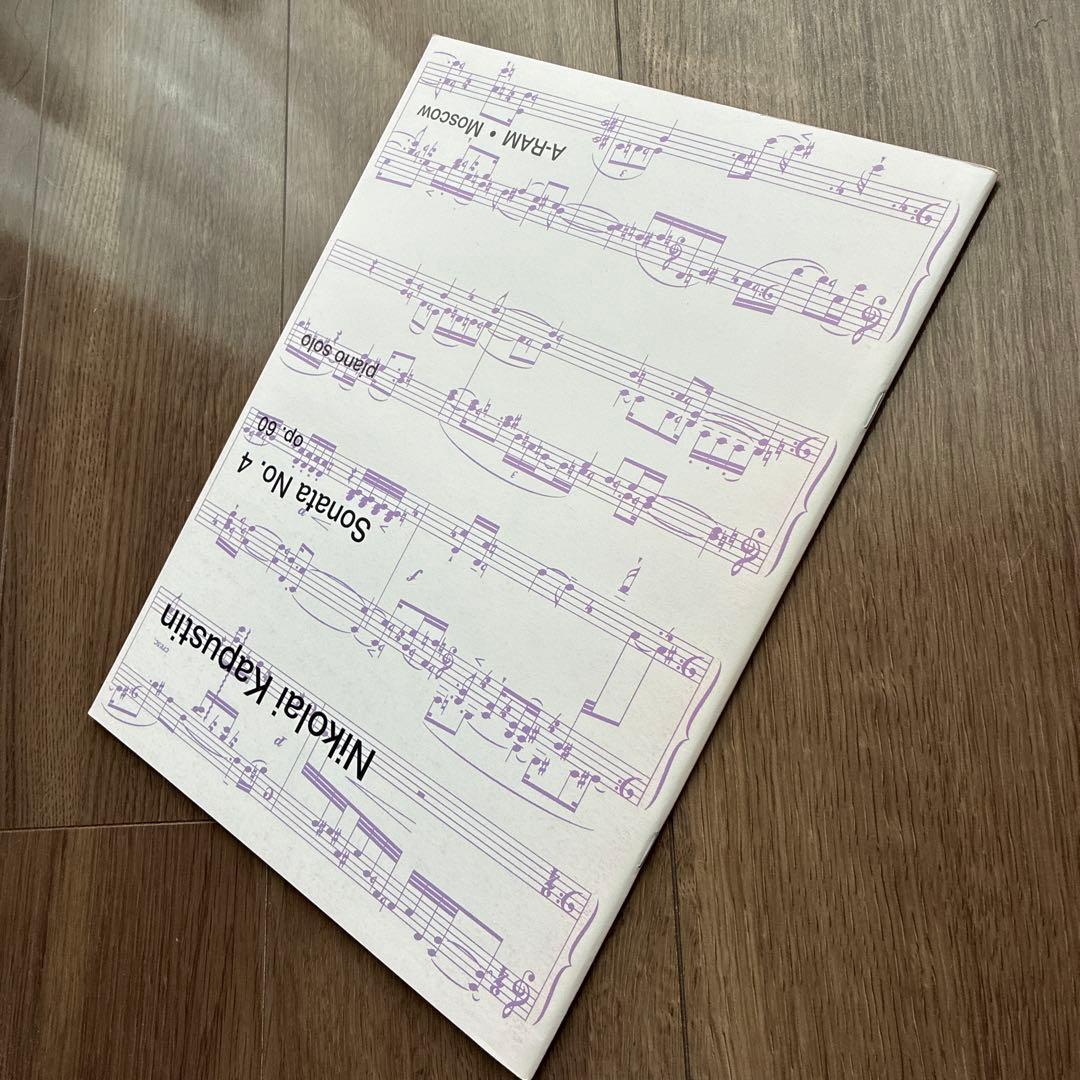 Nikolai Kapustin
Sonata No. 4
op. 60
piano solo
A-RAM • Moscow
cresc
f
3
3